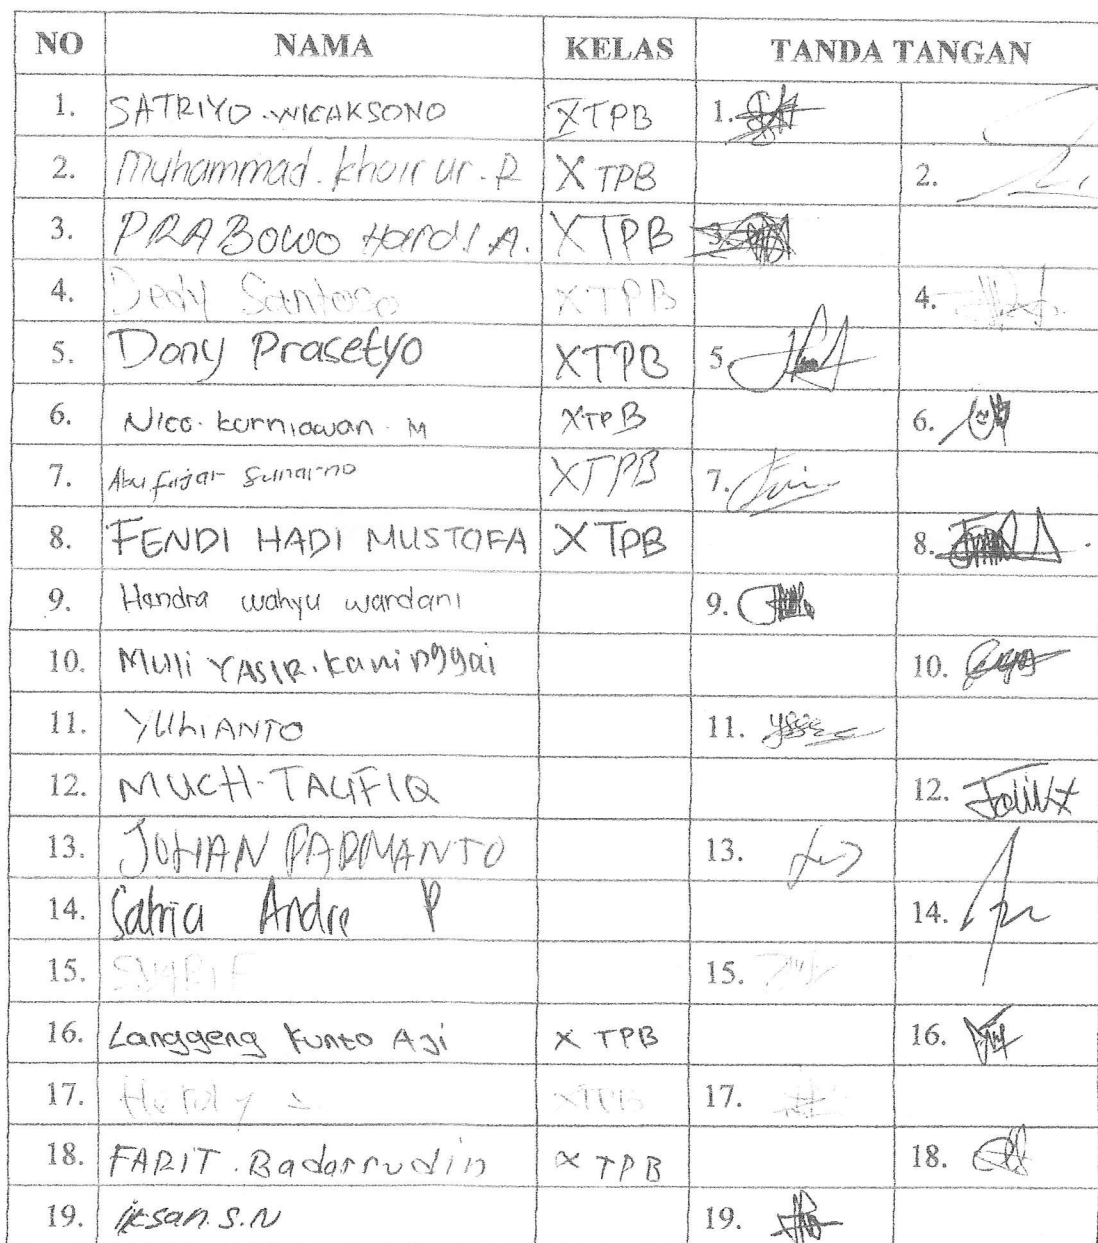 NO NAMA KELAS TANDA TANGAN
1. SATRIYO.WICAKSONO XTPB 1.
2. Muhammad.khoirur.R X TPB 2.
3. PRABOWO Hardi A. XTPB 3.
4. Dedy Santoso XTPB 4.
5. Dony Prasetyo XTPB 5.
6. Nico.kurniawan.M XTPB 6.
7. Abu fajar Sunarno XTPB 7.
8. FENDI HADI MUSTOFA X TPB 8.
9. Hendra wahyu wardani 9.
10. YASIR. 10.
11. YULIANTO 11.
12. MUCH-TAUFIQ 12.
13. JOHAN PARMANTO 13.
14. Satria Andre P 14.
15. SYARIF 15.
16. Langgeng Kunto Aji X TPB 16.
17. XTPB 17.
18. FARIT.Badarrudin X TPB 18.
19. iksan.S.N 19.